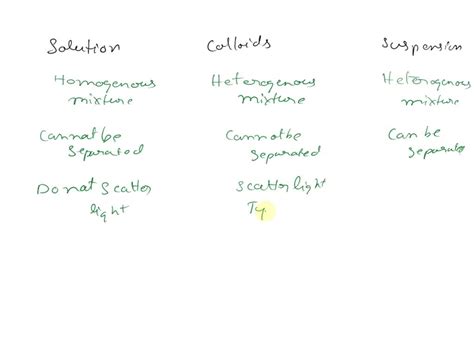 Solution Colloids Suspension
Homogenous Heterogenous Heterogenous
mixture mixture mixture
Cannot be Cannot be Can be
separated separated separate
Do not scatter scatter light
light Ty